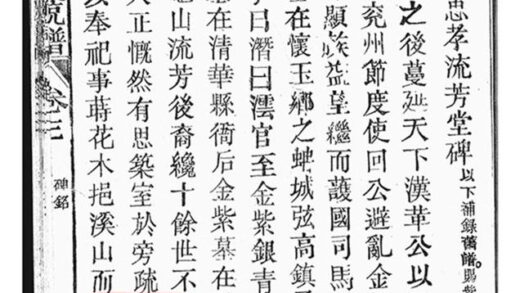 忠孝流芳堂碑以下補錄舊譜
之後蔓延天下漢華公以
兗州節度使回公避亂金
顯族益望繼而護國司馬
在懷玉鄉之蚺城弦高鎮
曰潛曰澐官至金紫銀青
墓在清華縣衙后金紫墓在
山流芳後裔纔十餘世不
正慨然有思築室於旁疏
奉祀事蒔花木挹溪山而
統譜 卷 碑銘